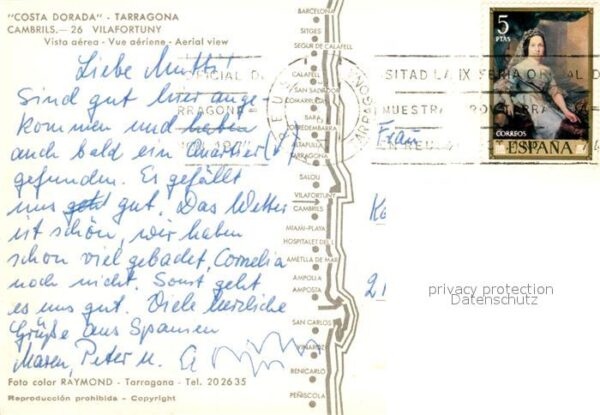 "COSTA DORADA" - TARRAGONA
CAMBRILS.— 26 VILAFORTUNY
Vista aérea - Vue aériene - Aerial view
Liebe Mutti!
Sind gut hier ange-
kommen und haben
auch bald ein Quartier (
gefunden. Es gefällt
uns gut. Das Wetter
ist schön, wir haben
schon viel gebadet, Cornelia
noch nicht. Sonst geht
es uns gut. Viele herzliche
Grüße aus Spanien
Maren, Peter u.
Foto color RAYMOND - Tarragona - Tel. 202635
Reproducción prohibida - Copyright
BARCELONA
SITGES
SEGUR DE CALAFELL
CALAFELL
SAN SADURNI
COMARRUGA
BARA
TORREDEMBARRA
ALTAFULLA
TARRAGONA
SALOU
VILAFORTUNY
CAMBRILS
MIAMI-PLAYA
HOSPITALET DEL I.
AMETLLA DE MAR
AMPOLLA
AMPOSTA
SAN CARLOS
VINAROZ
BENICARLO
PEÑISCOLA
SITAD LA IX FERIA OFICIAL D
MUESTRA
5
PTAS
CORREOS
ESPAÑA
Frau
privacy protection
Datenschutz